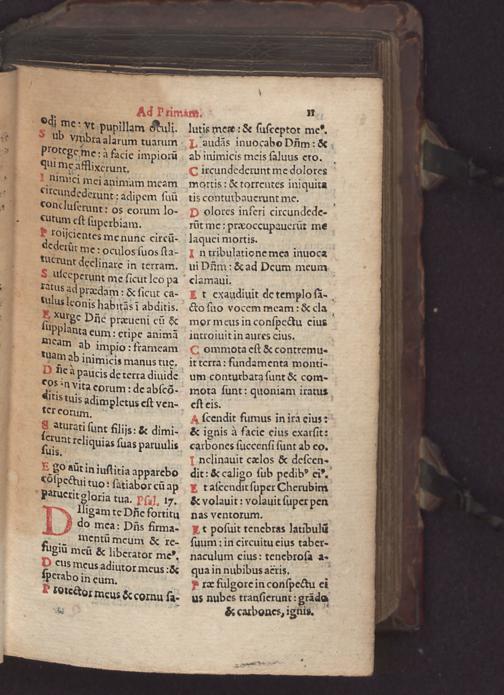 Ad Primam. 11
odi me: vt pupillam oculi.
S ub vmbra alarum tuarum
protege me: à facie impiorū
qui me afflixerunt.
I nimici mei animam meam
circundederunt: adipem suū
concluserunt: os eorum lo-
cutum est superbiam.
P roijcientes me nunc circū-
dederūt me: oculos suos sta-
tuerunt declinare in terram.
S usceperunt me sicut leo pa
ratus ad prædam: & sicut ca-
tulus leonis habitās ī abditis.
E xurge Dn̄e præueni eū &
supplanta eum: eripe animā
meam ab impio: frameam
tuam ab inimicis manus tuę.
D n̄e à paucis de terra diuide
eos in vita eorum: de abscō-
ditis tuis adimpletus est ven-
ter eorum.
S aturati sunt filijs: & dimi-
serunt reliquias suas paruulis
suis.
E go aūt in iustitia apparebo
cōspectui tuo: satiabor cū ap
paruerit gloria tua. Psal. 17.
D Iligam te Dn̄e fortitu
do mea: Dn̄s firma-
mentū meum & re-
fugiū meū & liberator meꝰ.
D eus meus adiutor meus: &
sperabo in eum.
P rotector meus & cornu sa-
lutis meæ: & susceptor meꝰ.
L audās inuocabo Dn̄m: &
ab inimicis meis saluus ero.
C ircundederunt me dolores
mortis: & torrentes iniquita
tis conturbauerunt me.
D olores inferi circundede-
rūt me: præoccupauerūt me
laquei mortis.
I n tribulatione mea inuoca
ui Dn̄m: & ad Deum meum
clamaui.
E t exaudiuit de templo sā-
cto suo vocem meam: & cla
mor meus in conspectu eius
introiuit in aures eius.
C ommota est & contremu-
it terra: fundamenta monti-
um conturbata sunt & com-
mota sunt: quoniam iratus
est eis.
A scendit fumus in ira eius:
& ignis à facie eius exarsit:
carbones succensi sunt ab eo.
I nclinauit cælos & descen-
dit: & caligo sub pedibꝰ eiꝰ.
E t ascendit super Cherubim
& volauit: volauit super pen
nas ventorum.
E t posuit tenebras latibulū
suum: in circuitu eius taber-
naculum eius: tenebrosa a-
qua in nubibus aëris.
P ræ fulgore in conspectu ei
us nubes transierunt: grādo
& carbones, ignis.